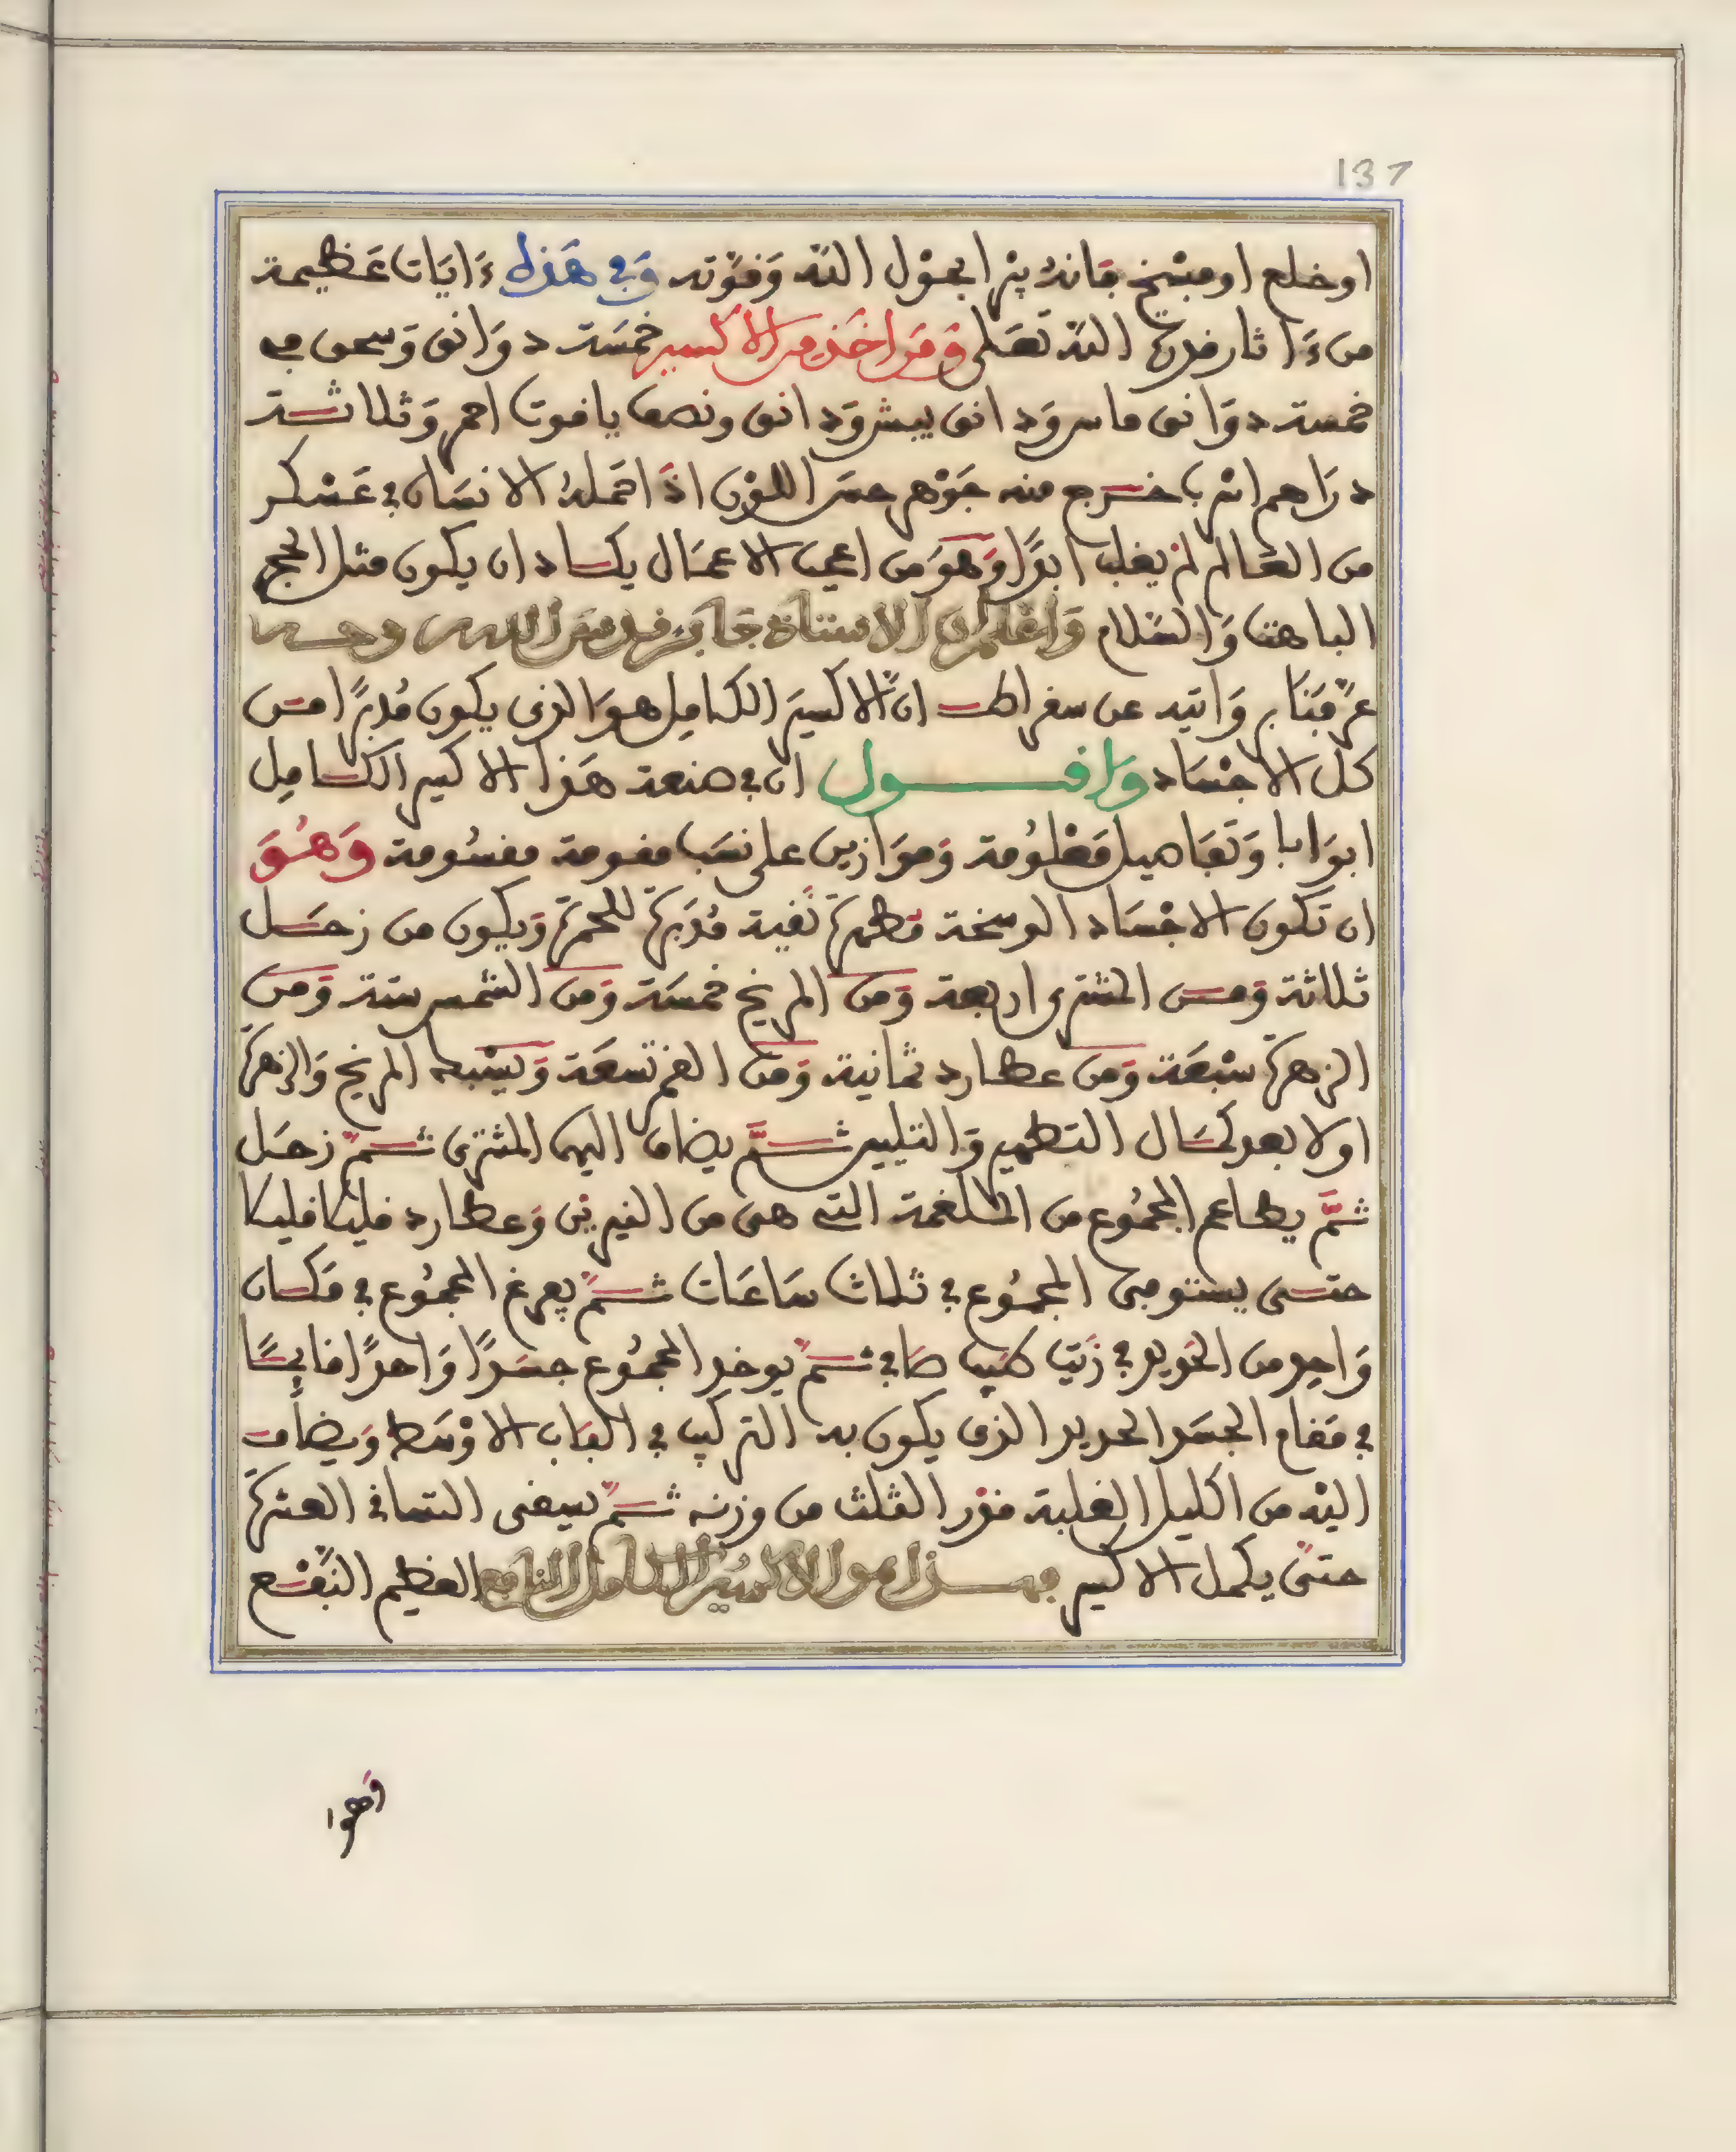 137
او خلع او فسخ فانه يبرا بحول الله وقوته وفي هذه ءايات عظيمة
من ءاثار قدرة الله تعلى ومن اخذ من الاكسير خمسة دوانق وسحق مع
خمسة دوانق ماس ودانق يبش ودانق ونصف ياقوت احمر وثلاثة
دراهم خرج منه جوهر حسن اللون اذا حمله الانسان في عسكر
من العالم لم يغلب ابدا وهو من اعجب الاعمال يكاد ان يكون مثل الحجر
الباهت والسلام واعلم ان الاستاذ جابر قدس الله روحه
عرفنا برواتيه عن سقراط ان الاكسير الكامل هو الذي يكون مدبرا من
كل الاجساد واقول ان في صنعة هذا الاكسير الكامل
ابوابا وتفاصيل معلومة وموازين على نسب مقومة مقسومة وهو
ان تكون الاجساد الوسخة مطهرة نقية مدبرة للحمرة ويكون من زحل
ثلاثة ومن المشتري اربعة ومن المريخ خمسة ومن الشمس ستة ومن
الزهرة سبعة ومن عطارد ثمانية ومن القمر تسعة ويسبك المريخ والزهرة
اولا بعد كمال التطهير والتليين ثم يضاف اليهما المشتري ثم زحل
ثم يطاعم المجموع من الملغمة التي هي من النيرين وعطارد قليلا قليلا
حتى يستوفى المجموع في ثلاث ساعات ثم يفرغ المجموع في مكان
واحد من الحديد في زيت طيب صافي ثم يوخذ المجموع جسدا واحدا قائما
في مقام الجسد الجديد الذي يكون به التركيب في الباب الاوسط ويضاف
اليه من اكليل الغلبة قدر الثلث من وزنه ثم يسقى التساقي العشرة
حتى يكمل الاكسير فهذا هو الاكسير الكامل النافع العظيم النفع
وهوا